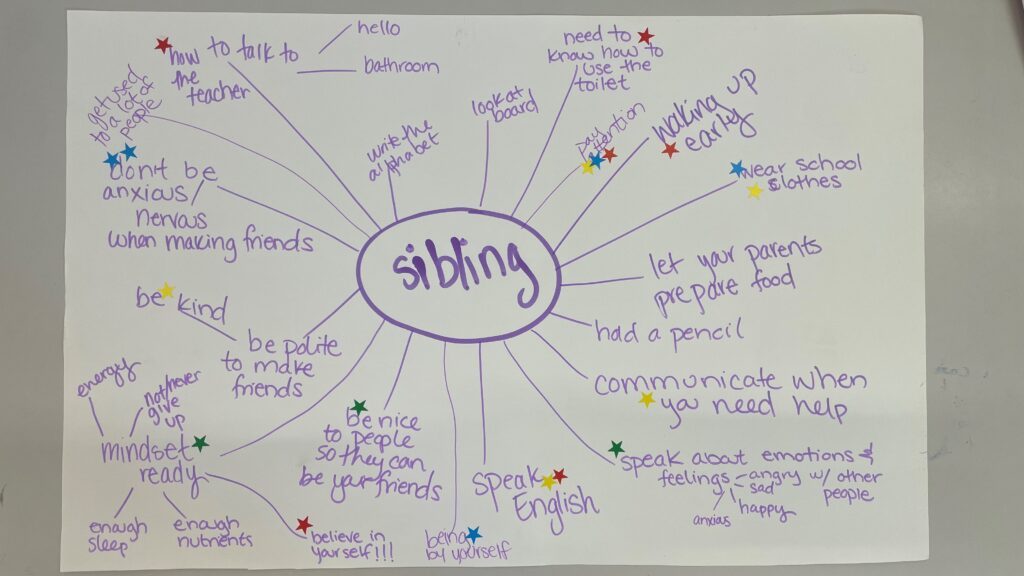 how to talk to
the
teacher
hello
bathroom
get used
to a lot of
people
don't be
anxious/
nervous
when making friends
write the
alphabet
look at
board
need to
know how to
use the
toilet
pay
attention
waking up
early
wear school
clothes
sibling
let your parents
prepare food
had a pencil
communicate when
you need help
speak about emotions &
feelings
angry w/ other
people
sad
happy
anxious
speak
English
being
by yourself
be nice
to people
so they can
be your friends
be polite
to make
friends
be kind
mindset
ready
energy
not/never
give
up
enough
sleep
enough
nutrients
believe in
yourself!!!